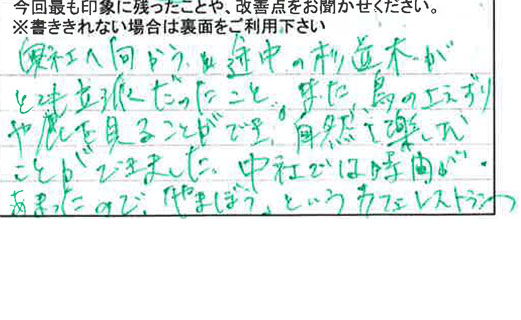 今回最も印象に残ったことや、改善点をお聞かせください。
※書ききれない場合は裏面をご利用下さい
奥社へ向かう途中の杉並木が
とても立派だったこと。また、鳥のさえずり
や鹿を見ることができ、自然を楽しむ
ことができました。中社では時間が
あまったので、「やまぼうし」というカフェレストラン